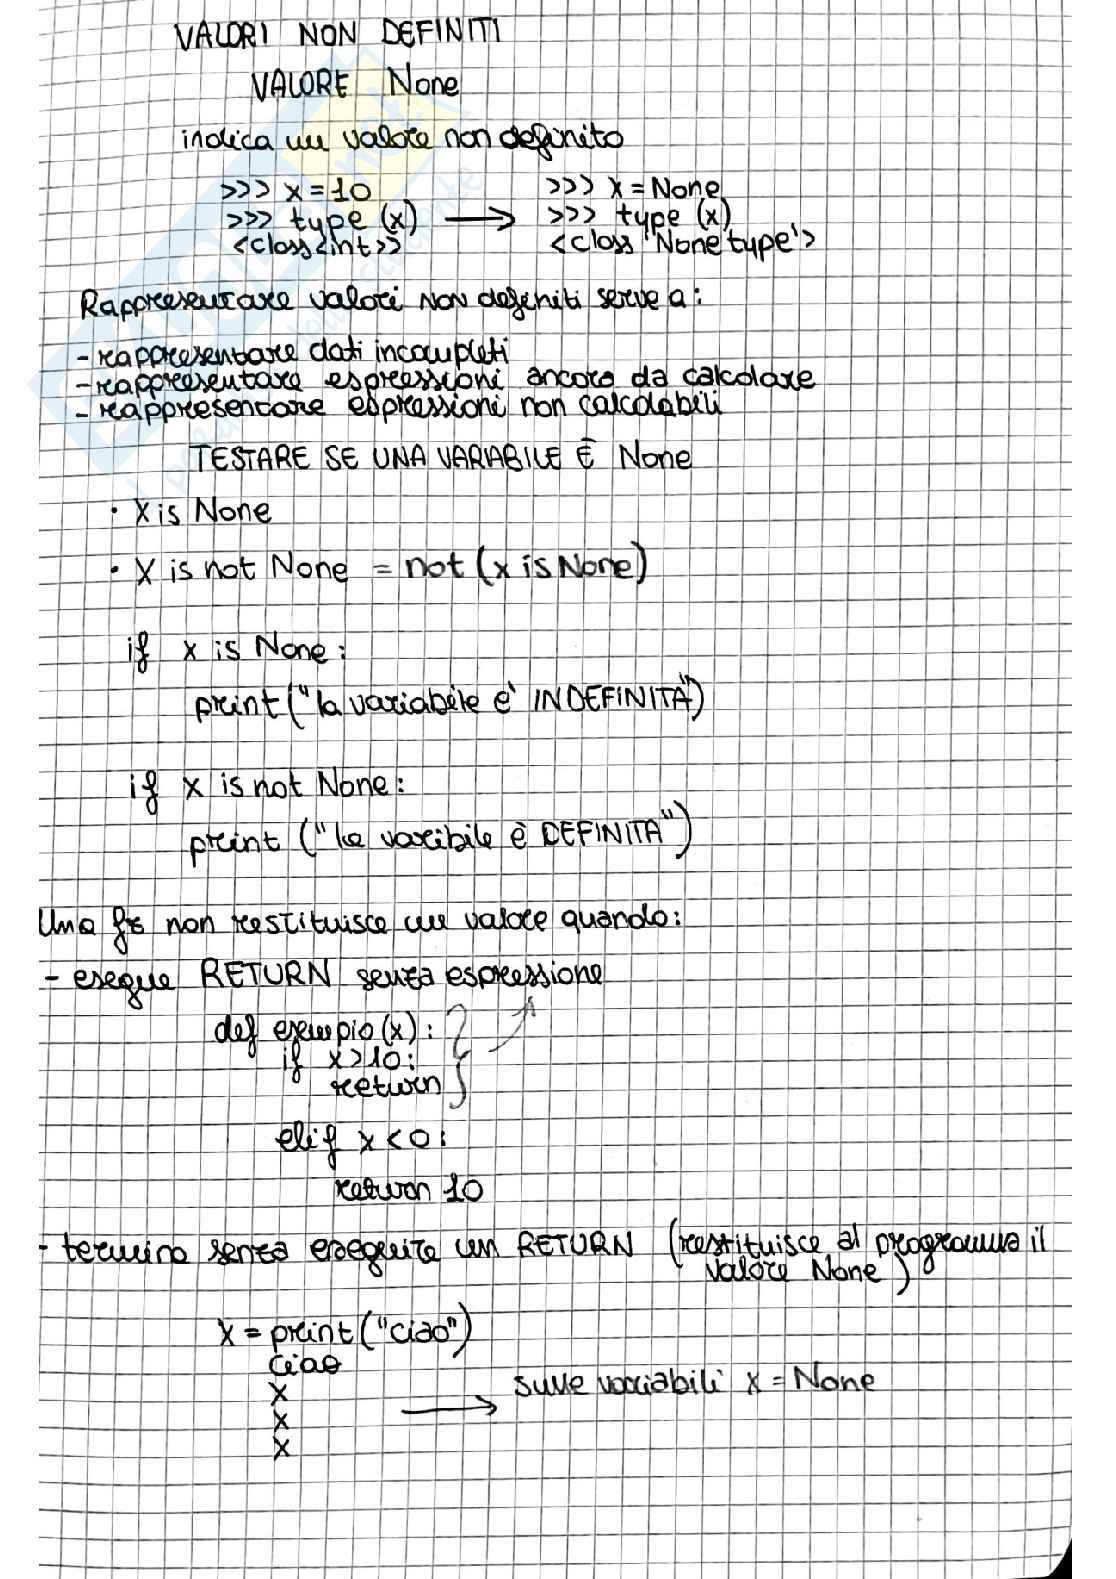 VALORI NON DEFINITI
VALORE None
indica un valore non definito
>>> x = 10
>>> type (x)
<class<int>>
>>> x = None
>>> type (x)
<class 'Nonetype'>
Rappresentare valori non definiti serve a:
- rappresentare dati incompleti
- rappresentare espressioni ancora da calcolare
- rappresentare espressioni non calcolabili
TESTARE SE UNA VARIABILE È None
• X is None
• X is not None = not (x is None)
if x is None:
print ("la variabile è INDEFINITA")
if x is not None:
print ("la varibile è DEFINITA")
Una fz non restituisce un valore quando:
- esegue RETURN senza espressione
def esempio (x):
if x > 10:
return
elif x < 0:
return 10
- termina senza eseguire un RETURN (restituisce al programma il
valore None)
x = print ("ciao")
ciao
x
x
x
sulle variabili x = None